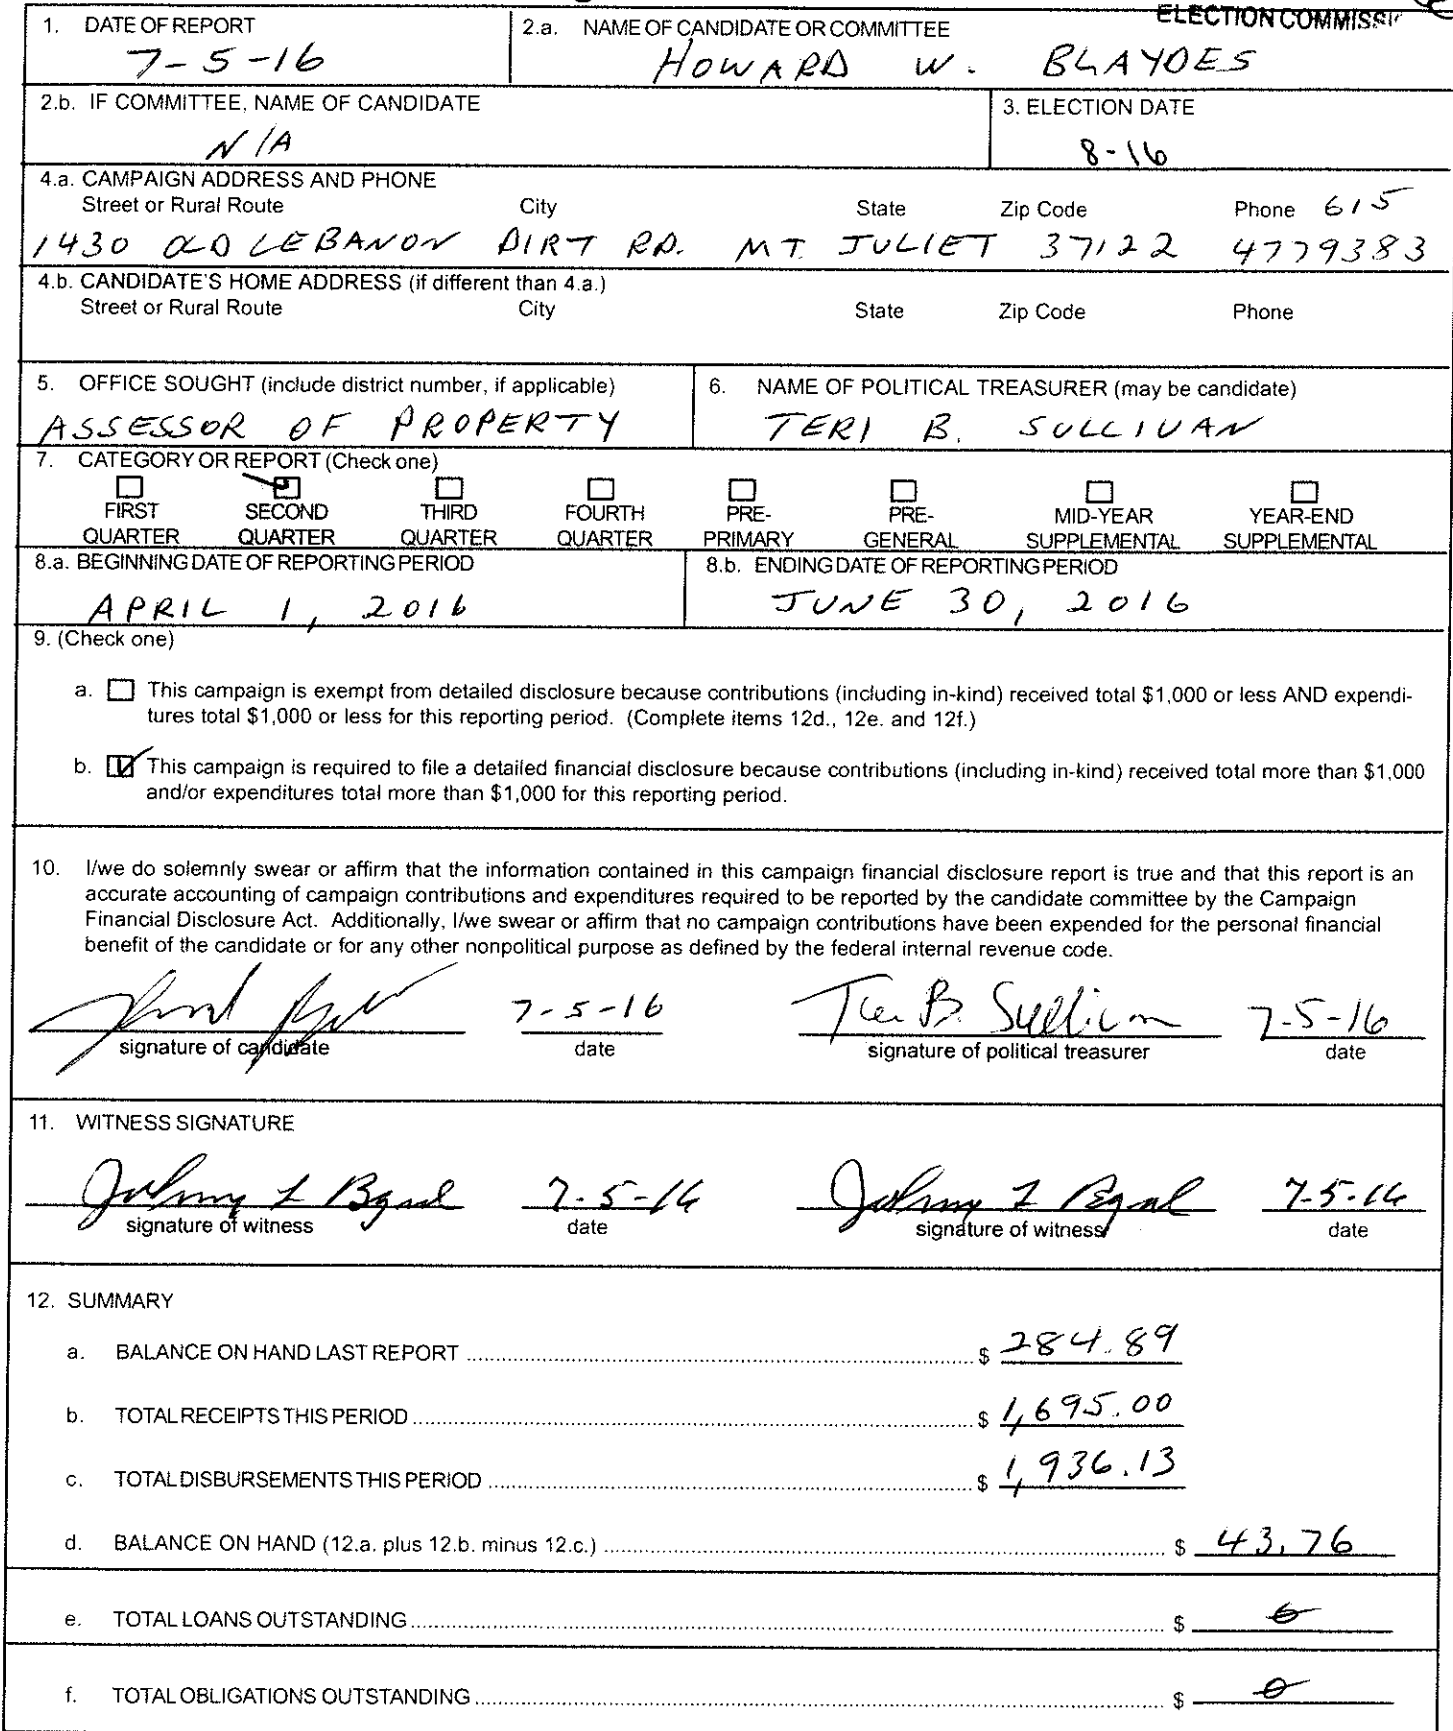 ELECTION COMMISSI
1. DATE OF REPORT
7-5-16
2.a. NAME OF CANDIDATE OR COMMITTEE
HOWARD W. BLAYDES
2.b. IF COMMITTEE, NAME OF CANDIDATE
N/A
3. ELECTION DATE
8-16
4.a. CAMPAIGN ADDRESS AND PHONE
Street or Rural Route City State Zip Code Phone 615
1430 OLD LEBANON DIRT RD. MT. JULIET 37122 4779383
4.b. CANDIDATE'S HOME ADDRESS (if different than 4.a.)
Street or Rural Route City State Zip Code Phone
5. OFFICE SOUGHT (include district number, if applicable)
ASSESSOR OF PROPERTY
6. NAME OF POLITICAL TREASURER (may be candidate)
TERI B. SULLIVAN
7. CATEGORY OR REPORT (Check one)
FIRST SECOND THIRD FOURTH PRE- PRE- MID-YEAR YEAR-END
QUARTER QUARTER QUARTER QUARTER PRIMARY GENERAL SUPPLEMENTAL SUPPLEMENTAL
8.a. BEGINNING DATE OF REPORTING PERIOD
APRIL 1, 2016
8.b. ENDING DATE OF REPORTING PERIOD
JUNE 30, 2016
9. (Check one)
a. This campaign is exempt from detailed disclosure because contributions (including in-kind) received total $1,000 or less AND expendi-
tures total $1,000 or less for this reporting period. (Complete items 12d., 12e. and 12f.)
b. This campaign is required to file a detailed financial disclosure because contributions (including in-kind) received total more than $1,000
and/or expenditures total more than $1,000 for this reporting period.
10. I/we do solemnly swear or affirm that the information contained in this campaign financial disclosure report is true and that this report is an
accurate accounting of campaign contributions and expenditures required to be reported by the candidate committee by the Campaign
Financial Disclosure Act. Additionally, I/we swear or affirm that no campaign contributions have been expended for the personal financial
benefit of the candidate or for any other nonpolitical purpose as defined by the federal internal revenue code.
7-5-16 B. Sullivan 7-5-16
signature of candidate date signature of political treasurer date
11. WITNESS SIGNATURE
7-5-16 7-5-16
signature of witness date signature of witness date
12. SUMMARY
a. BALANCE ON HAND LAST REPORT $ 284.89
b. TOTAL RECEIPTS THIS PERIOD $ 1,695.00
c. TOTAL DISBURSEMENTS THIS PERIOD $ 1,936.13
d. BALANCE ON HAND (12.a. plus 12.b. minus 12.c.) $ 43.76
e. TOTAL LOANS OUTSTANDING $ 0
f. TOTAL OBLIGATIONS OUTSTANDING $ 0